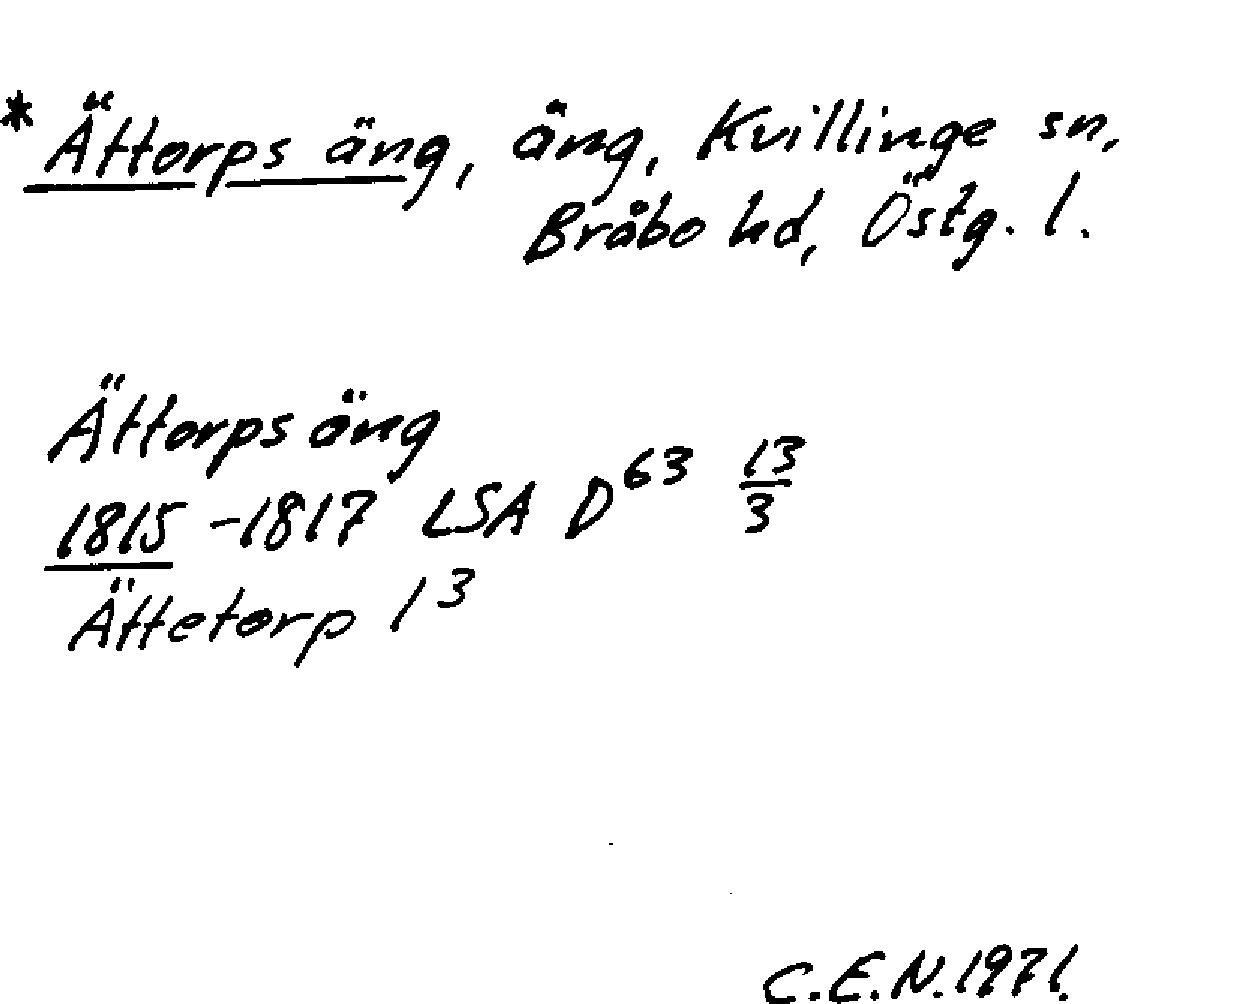 * Ättorps äng, äng, Kvillinge sn,
Bråbo hd, Östg. l.
Ättorps äng
1815 - 1817 LSA D⁶³ 13/3
Ättetorp 1³
C.E.N. 1971.